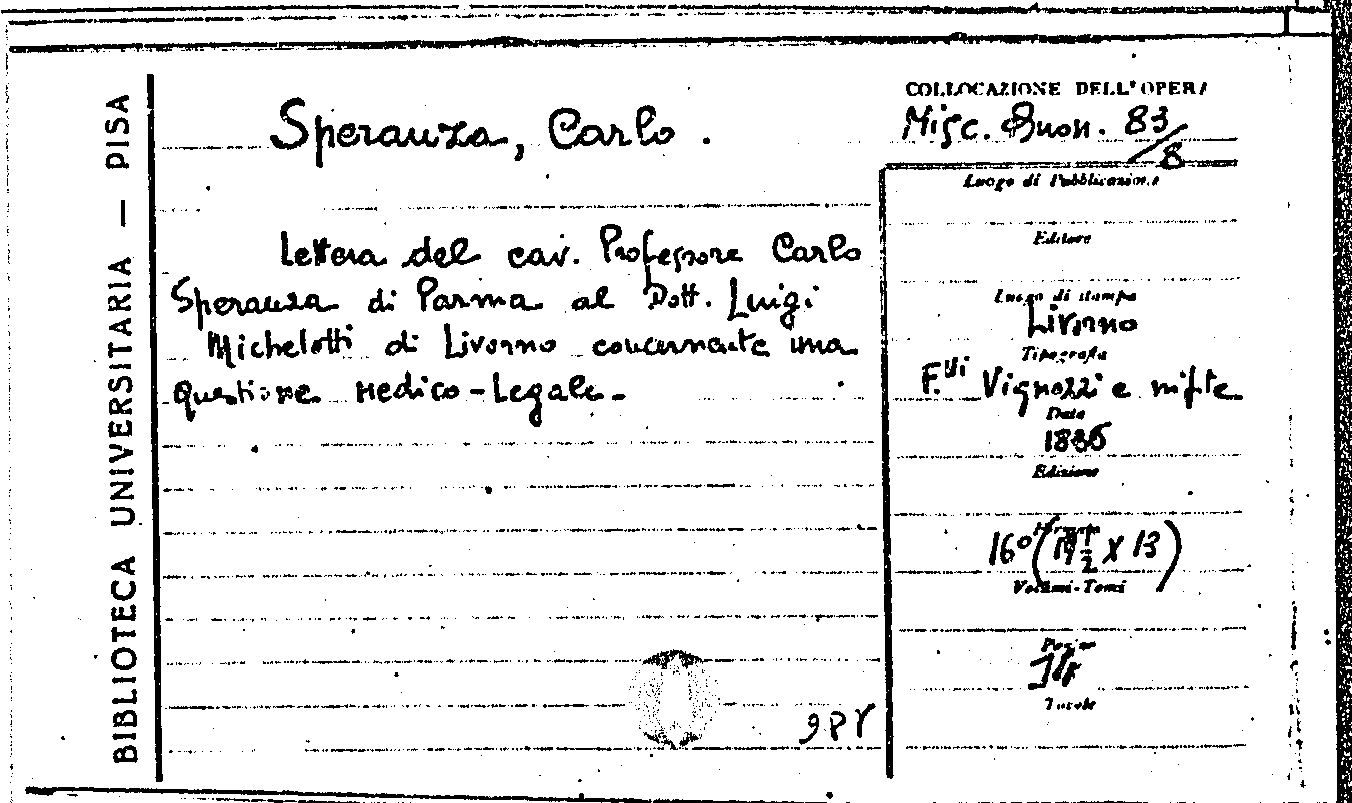 BIBLIOTECA UNIVERSITARIA — PISA
Speranza, Carlo.
Lettera del cav. Professore Carlo
Speranza di Parma al Dott. Luigi
Michelotti di Livorno concernente una
questione Medico-Legale.
COLLOCAZIONE DELL'OPERA
Misc. Buon. 83/8
Luogo di Pubblicazione
Editore
Luogo di stampa
Livorno
Tipografia
F.lli Vignozzi e nipte
Data
1836
Edizione
16° ( 1/2 X 13)
Volumi-Tomi
Pagine
Tavole